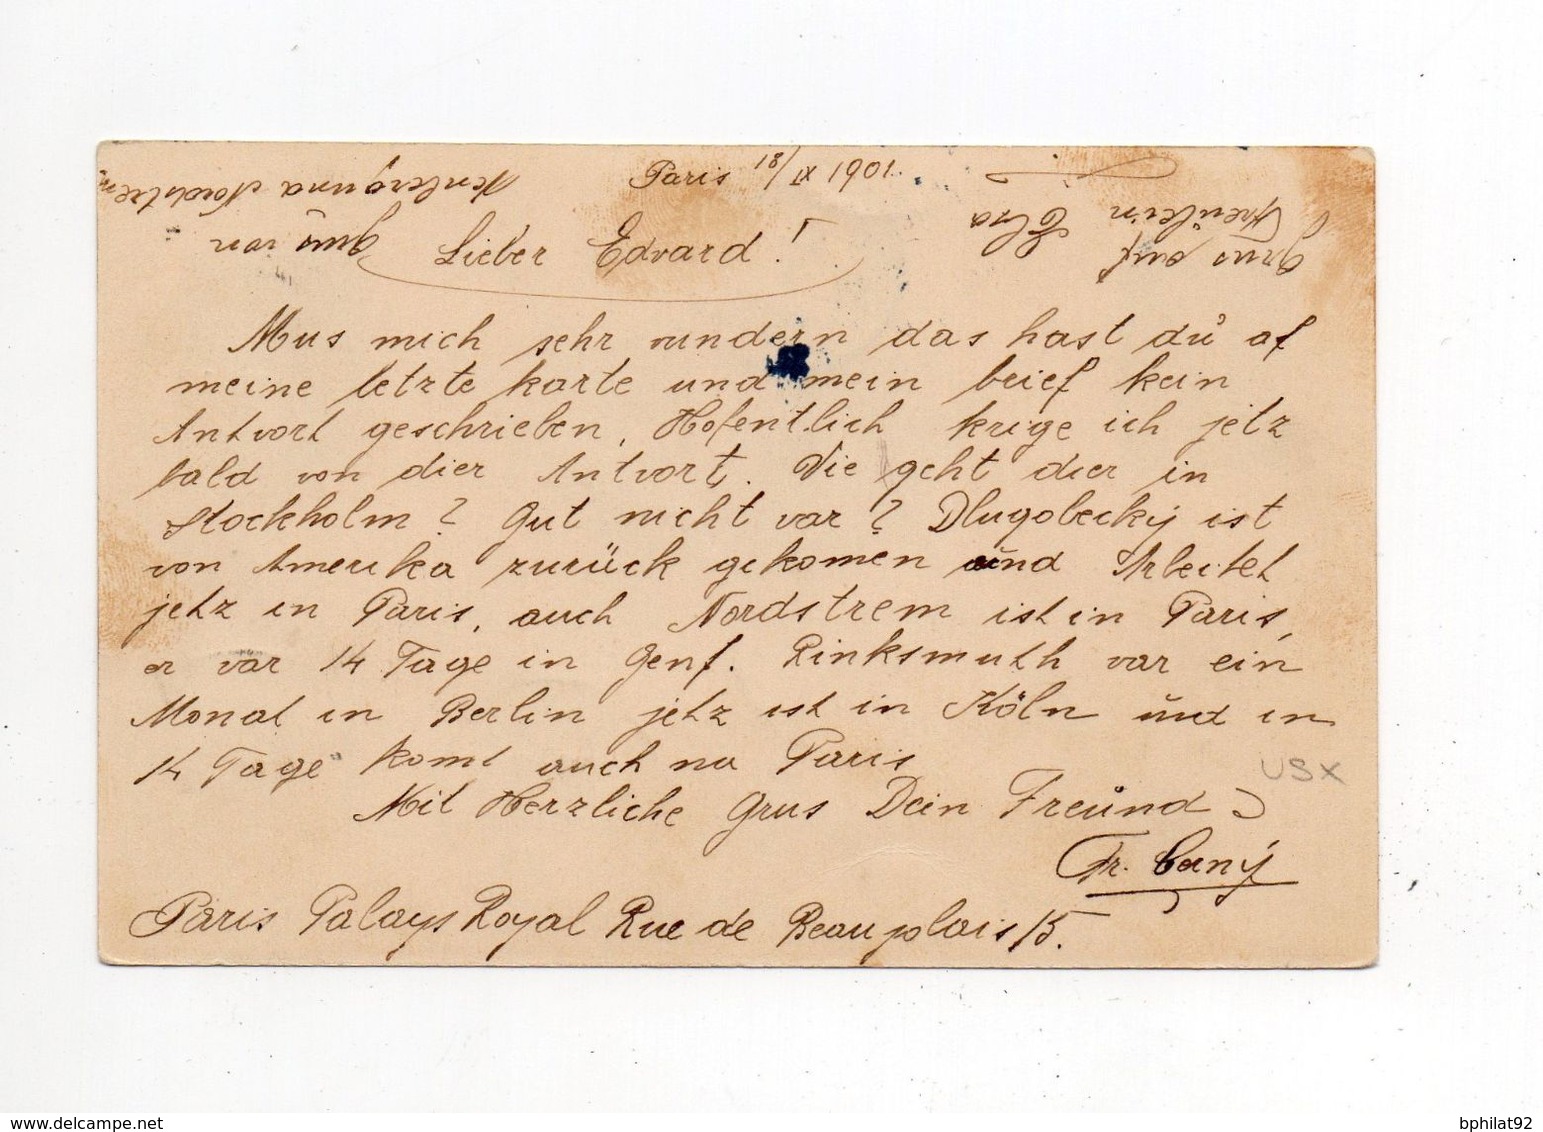 Paris 18/IX 1901.
Lieber Edvard!
Mus mich sehr vundern das hast du af
meine letzte karte und mein brief kein
Antvort geschrieben, Hofentlich krige ich jetz
bald von dier Antvort. Vie geht dier in
Stockholm? Gut nicht var? Dlugobeckij ist
von Amerika zurück gekomen und Arbeitet
jetz in Paris, auch Nordstrem ist in Paris,
er var 14 Tage in Genf. Rinksmuth var ein
Monat in Berlin jetz ist in Köln und in
14 Tage komt auch na Paris
Mit Herzliche Grus Dein Freund
Fr. Cerny
Paris Palays Royal Rue de Beaujolais 15.
Grus auf
Freulein Elsa
Grus von
und Nordstrem
USX
delcampe.net
bphilat92